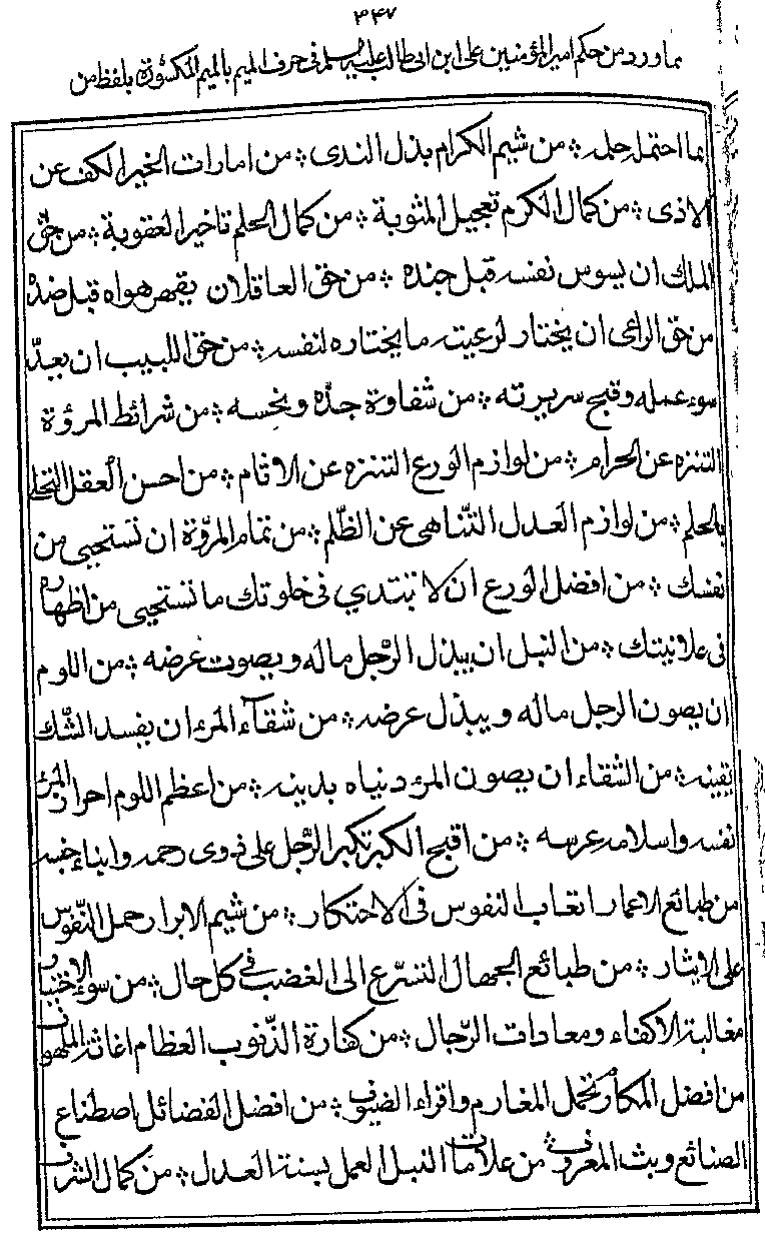 ٣٤٧
مما ورد من حكم امير المؤمنين على ابن ابى طالب عليه السلام فى حرف الميم بالميم المكسورة بلفظ من
بما احتمل حمله ؞ من شيم الكرام بذل الندى ؞ من امارات الخير الكف عن
الاذى ؞ من كمال الكرم تعجيل المثوبة ؞ من كمال الحلم تاخير العقوبة ؞ من حق
الملك ان يسوس نفسه قبل جنده ؞ من حق العاقل ان يقهر هواه قبل ضده
من حق الراعى ان يختار لرعيته ما يختاره لنفسه ؞ من حق اللبيب ان يعدّ
سوء عمله وقبح سريرته ؞ من شقاوة جدّه ونحسه ؞ من شرائط المرؤة
التنزه عن الحرام ؞ من لوازم الورع التنزه عن الاثام ؞ من احسن العقل التحلى
بالحلم ؞ من لوازم العدل التّناهى عن الظّلم ؞ من تمام المروّة ان تستحيى من
نفسك ؞ من افضل الورع ان لا تبتدي فى خلوتك ما تستحيى من اظهاره
فى علانيتك ؞ من النبل ان يبذل الرّجل ماله ويصون عرضه ؞ من اللوم
ان يصون الرجل ماله ويبذل عرضه ؞ من شقآء المرء ان يفسد الشّك
يقينه ؞ من الشقاء ان يصون المرء دنياه بدينه ؞ من اعظم اللوم احراز المرء
نفسه واسلامه عرسه ؞ من اقبح الكبر تكبر الرّجل على ذوى رحمه وابناء جنسه
من طبائع الاغمار اتعاب النفوس فى الاحتكار ؞ من شيم الابرار حمل النّفوس
على الايثار ؞ من طبائع الجهال التسرّع الى الغضب فى كل حال ؞ من سوء الاختيار
مغالبة الاكفاء ومعادات الرّجال ؞ من كفارة الذّنوب العظام اغاثة الملهوف
من افضل المكارم تحمل المغارم واقراء الضيوف ؞ من افضل الفضائل اصطناع
الصنائع وبث المعروف ؞ من علامات النبل العمل بسنة العدل ؞ من كمال الشرف